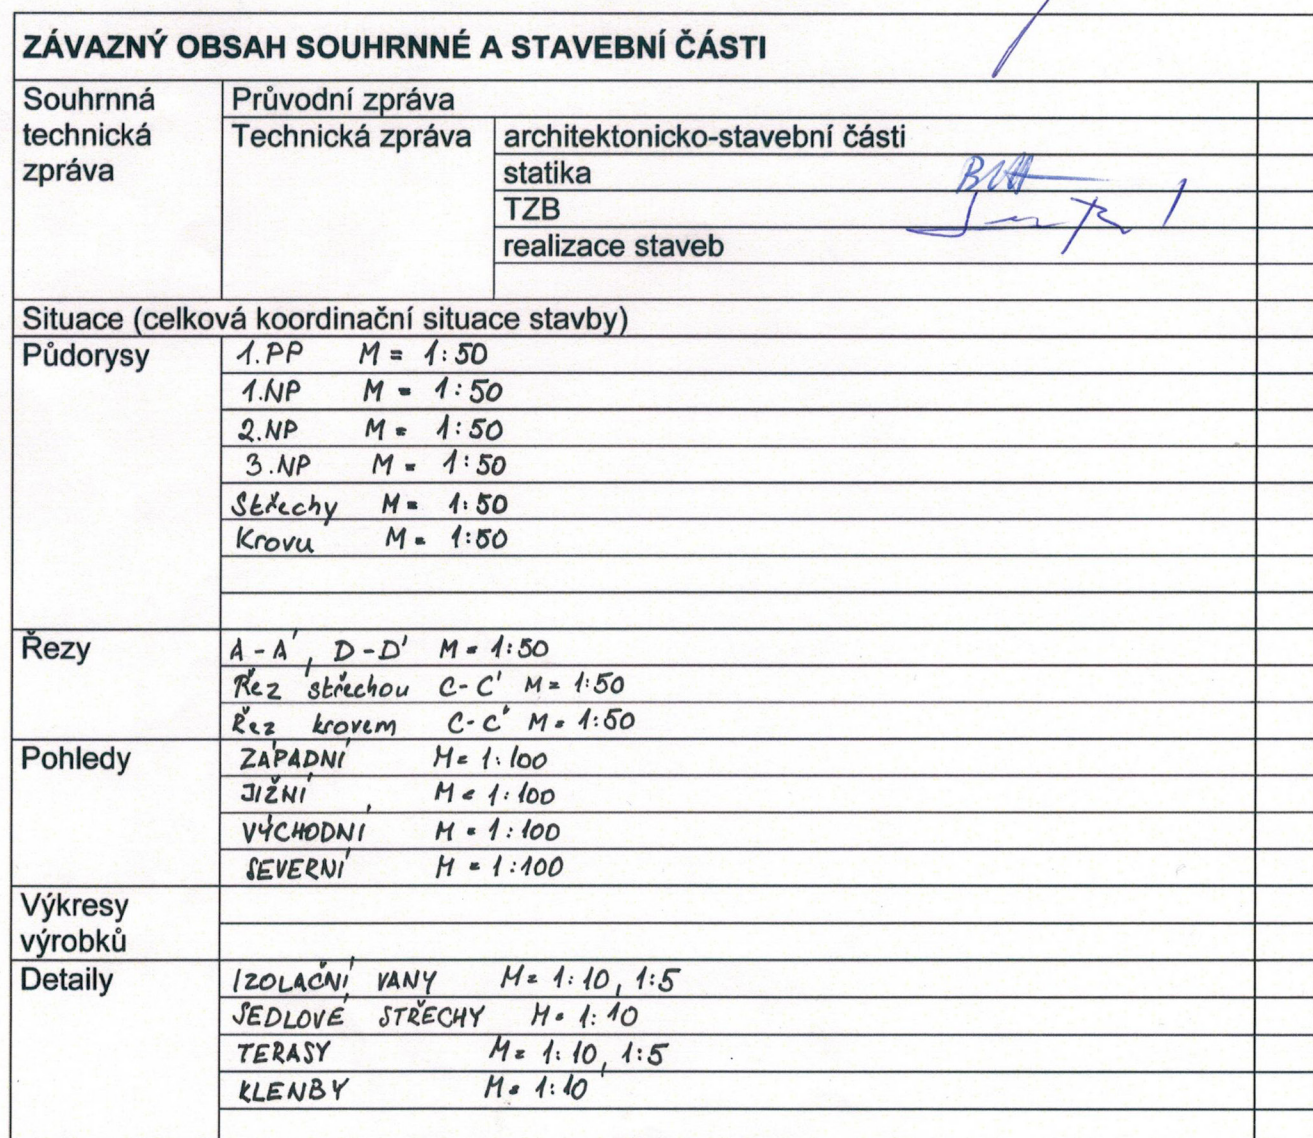 ZÁVAZNÝ OBSAH SOUHRNNÉ A STAVEBNÍ ČÁSTI
Souhrnná technická zpráva
Průvodní zpráva
Technická zpráva
architektonicko-stavební části
statika
TZB
realizace staveb
Situace (celková koordinační situace stavby)
Půdorysy
1.PP M = 1:50
1.NP M = 1:50
2.NP M = 1:50
3.NP M = 1:50
Střechy M = 1:50
Krovu M = 1:50
Řezy
A-A', D-D' M = 1:50
Řez střechou C-C' M = 1:50
Řez krovem C-C' M = 1:50
Pohledy
ZÁPADNÍ M = 1:100
JIŽNÍ M = 1:100
VÝCHODNÍ M = 1:100
SEVERNÍ M = 1:100
Výkresy výrobků
Detaily
IZOLAČNÍ VANY M = 1:10, 1:5
SEDLOVÉ STŘECHY M = 1:10
TERASY M = 1:10, 1:5
KLENBY M = 1:10